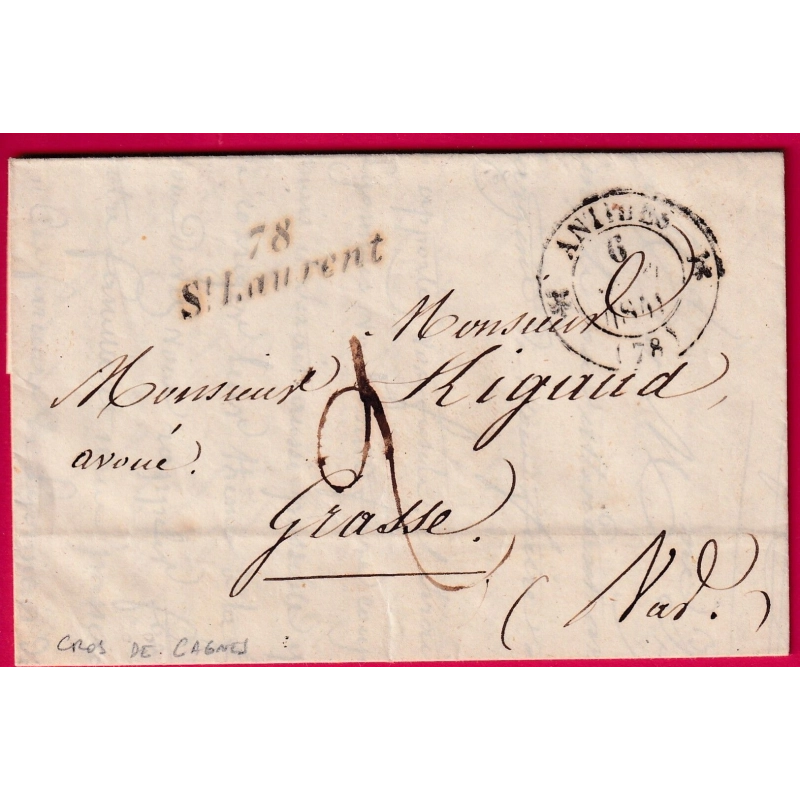 78
St Laurent
ANTIBES
6
1841
(78)
Monsieur
Monsieur Rigaud,
avoué.
2
Grasse.
(Var.)
CROS DE CAGNES